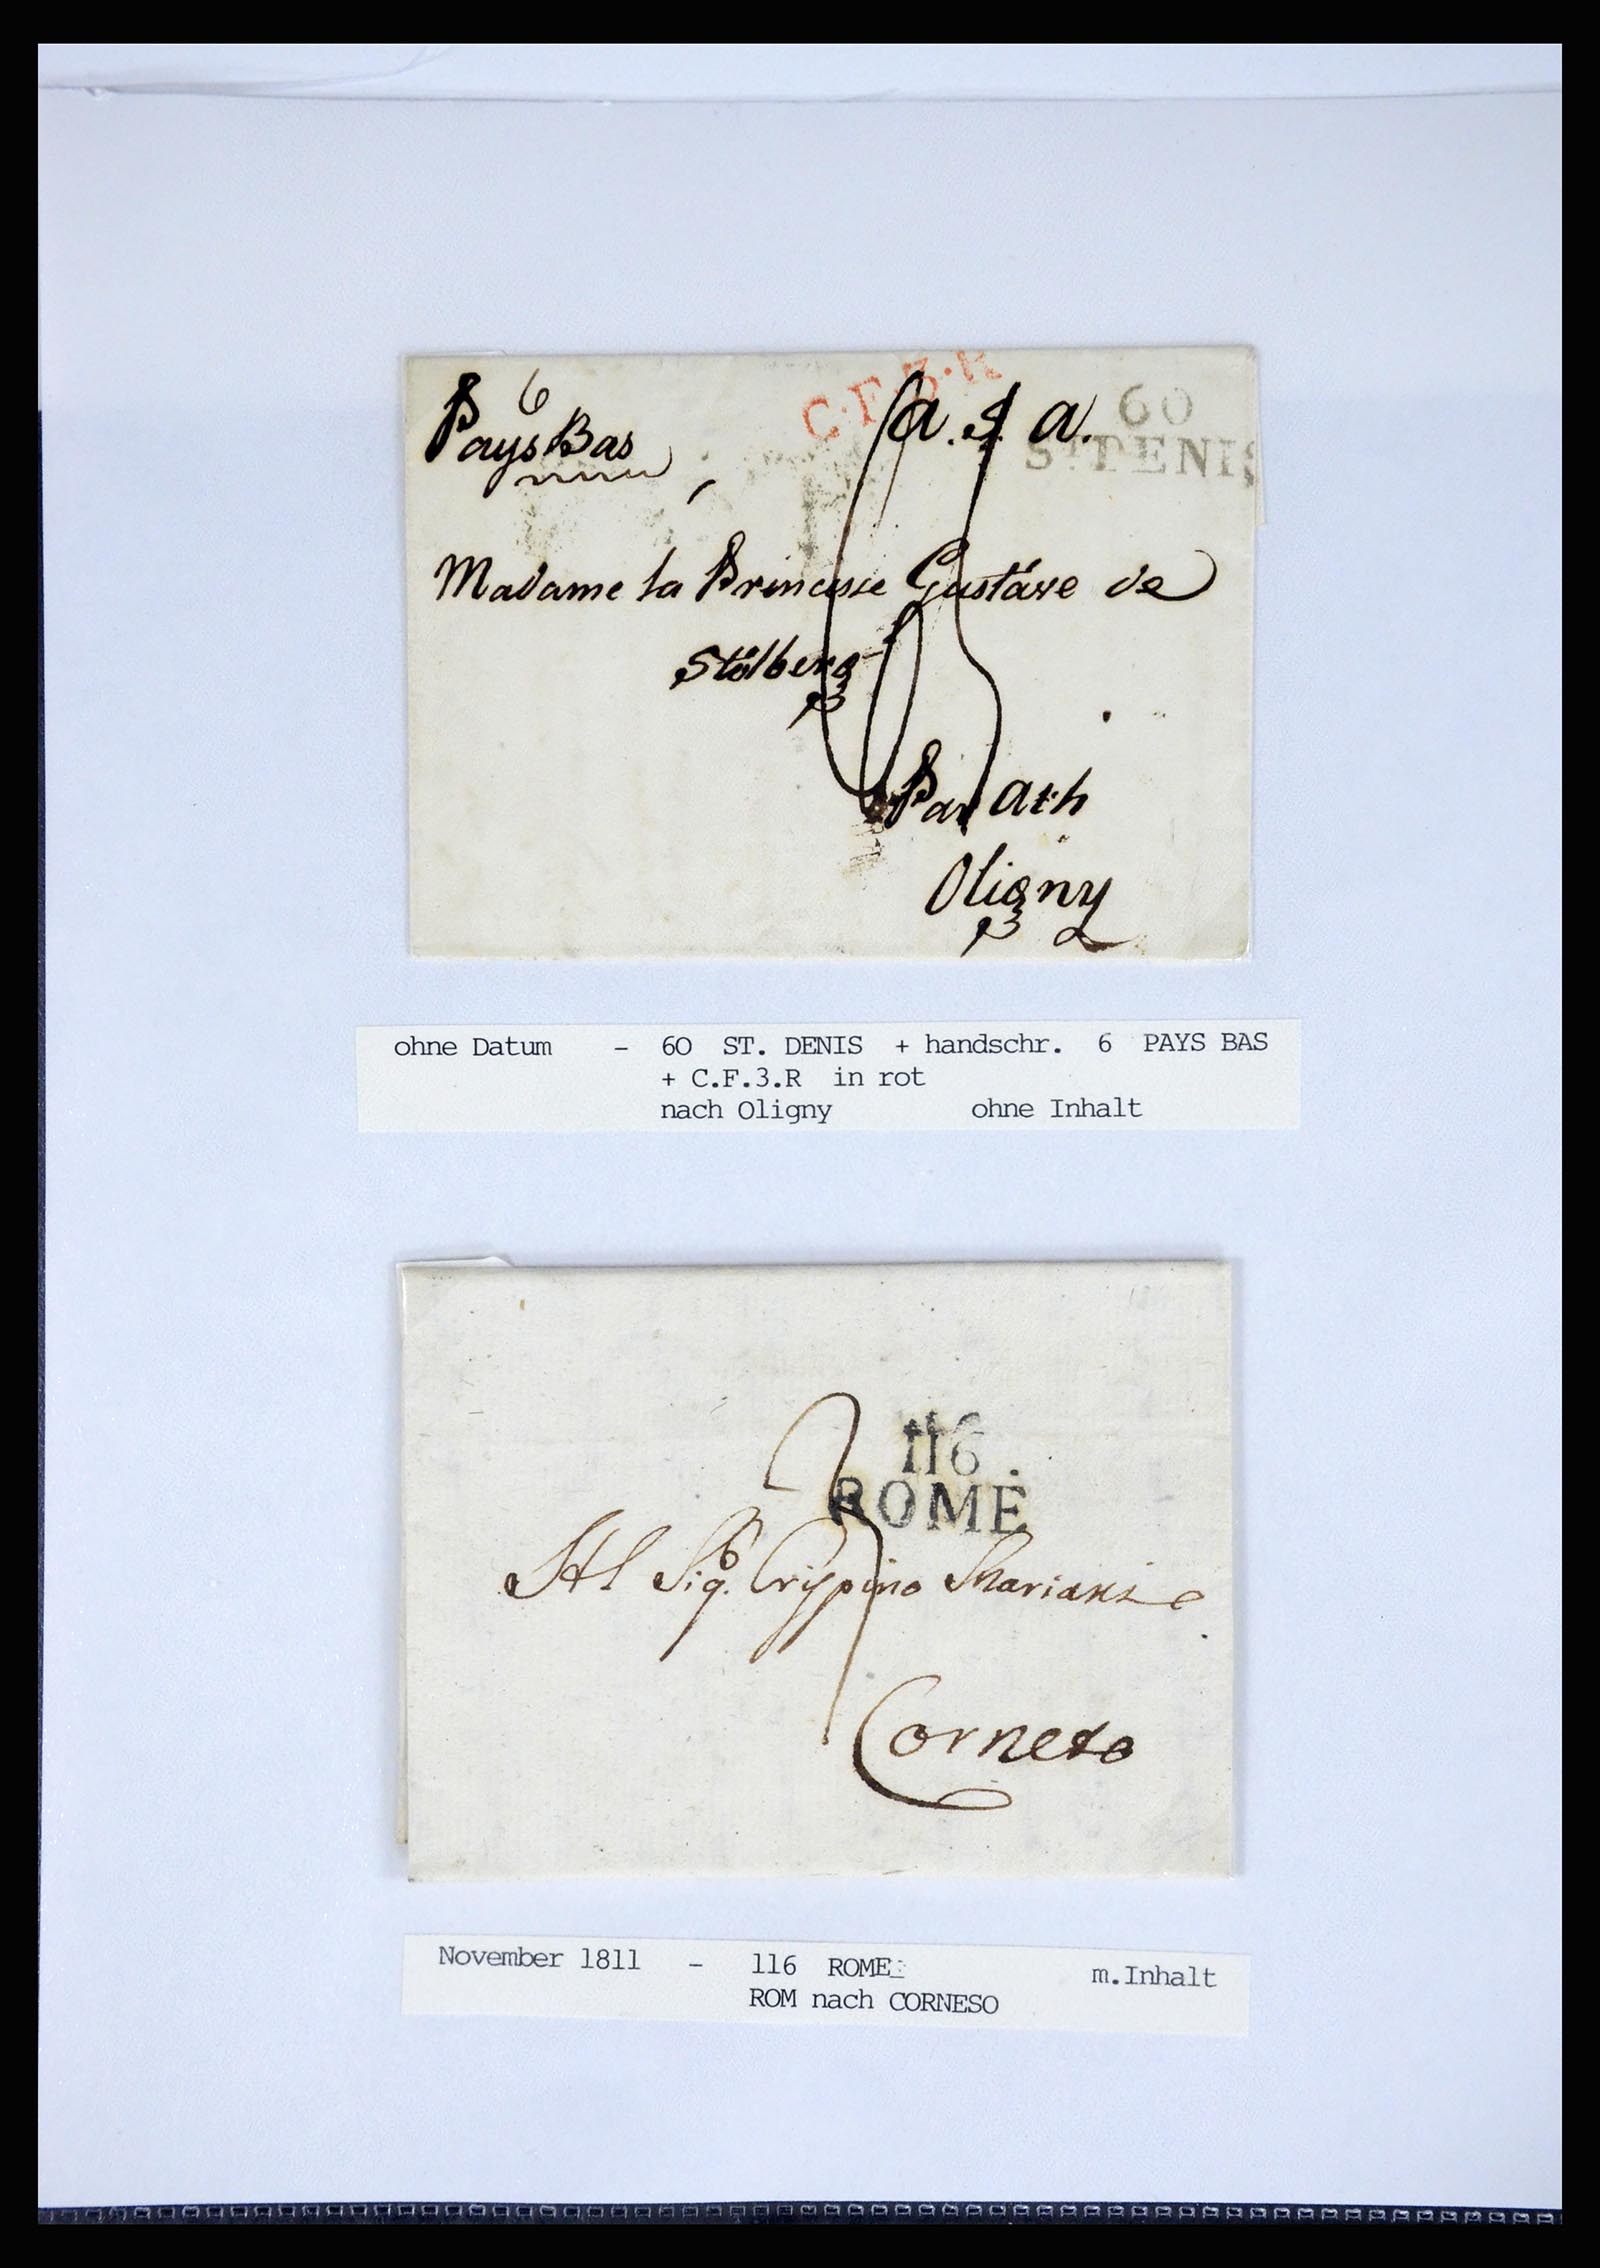 C.F.3.R
6
Pays Bas
a. s. a.
60
ST DENIS
Madame la Princesse Gustáve de
Stólberg
Par Ath
Oligny
ohne Datum - 60 ST. DENIS + handschr. 6 PAYS BAS
+ C.F.3.R in rot
nach Oligny ohne Inhalt
116
ROME
Al Sig. Crispino Mariani
Corneto
November 1811 - 116 ROME m.Inhalt
ROM nach CORNESO